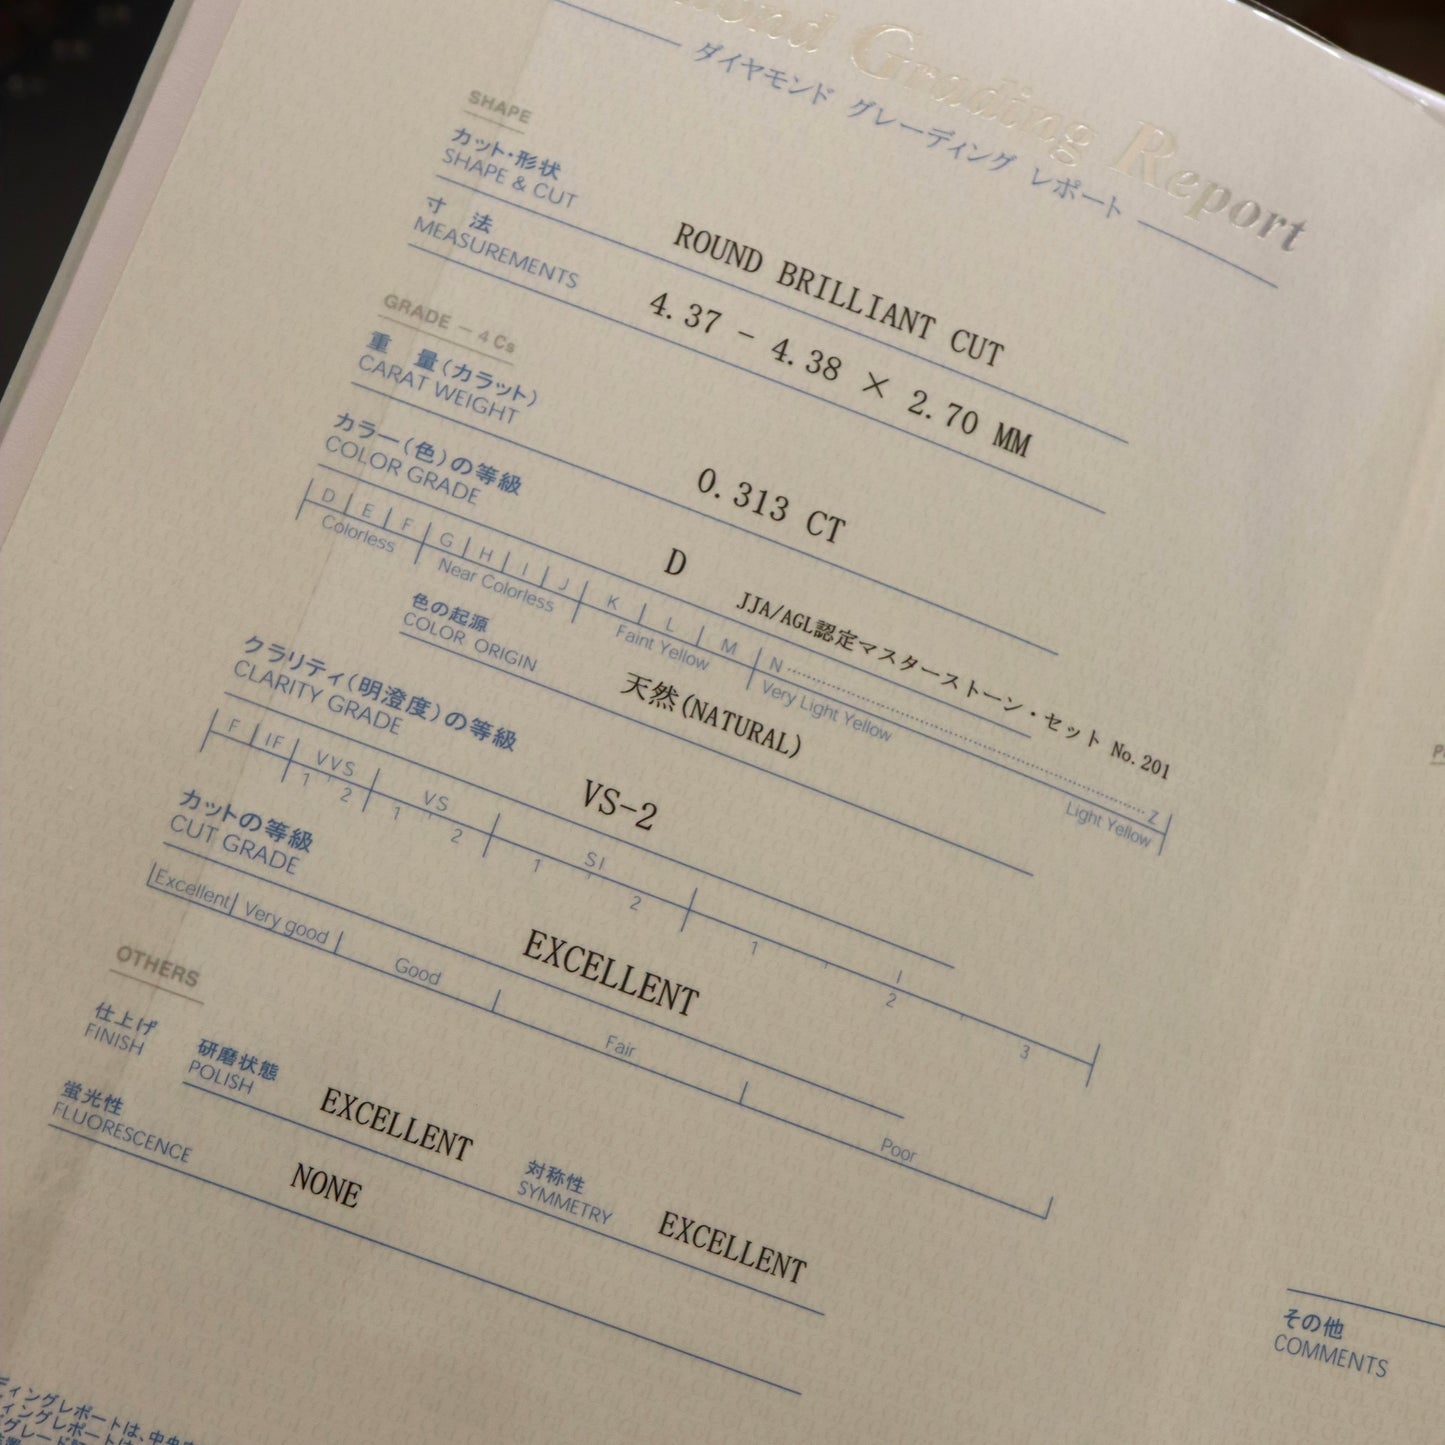 Grading Report
ダイヤモンド グレーディング レポート
SHAPE
カット・形状
SHAPE & CUT
ROUND BRILLIANT CUT
寸 法
MEASUREMENTS
4.37 - 4.38 × 2.70 MM
GRADE - 4Cs
重 量(カラット)
CARAT WEIGHT
0.313 CT
カラー(色)の等級
COLOR GRADE
D
JJA/AGL認定マスターストーン・セット No.201
D E F G H I J K L M N Z
Colorless Near Colorless Faint Yellow Very Light Yellow Light Yellow
色の起源
COLOR ORIGIN
天然(NATURAL)
クラリティ(明澄度)の等級
CLARITY GRADE
VS-2
F IF VVS VS SI I
1 2 1 2 1 2 1 2 3
カットの等級
CUT GRADE
EXCELLENT
Excellent Very good Good Fair Poor
OTHERS
仕上げ
FINISH
研磨状態
POLISH
EXCELLENT
対称性
SYMMETRY
EXCELLENT
蛍光性
FLUORESCENCE
NONE
その他
COMMENTS
ディングレポートは、中央